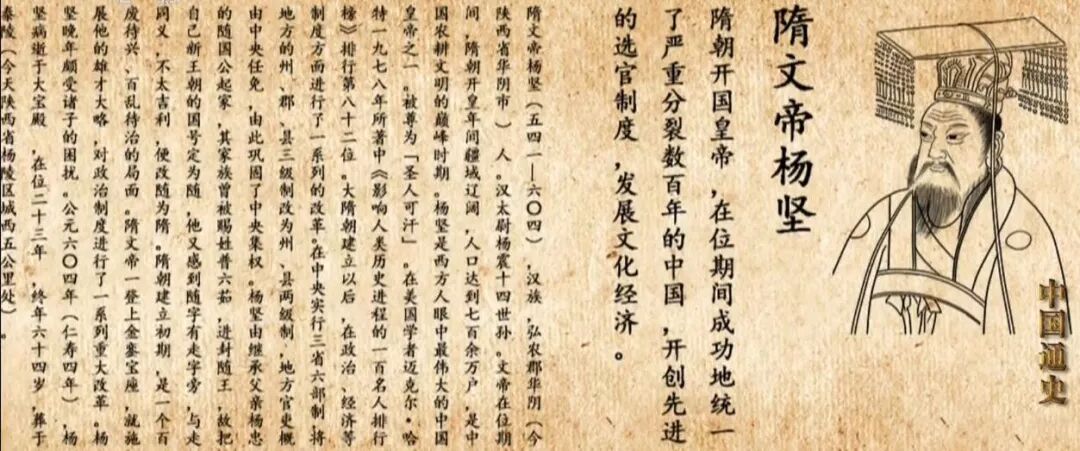 隋文帝杨坚
隋朝开国皇帝，在位期间成功地统一
了严重分裂数百年的中国，开创先进
的选官制度，发展文化经济。
隋文帝杨坚（五四一—六〇四），汉族，弘农郡华阴（今
陕西省华阴市）人。汉太尉杨震十四世孙。文帝在位期
间，隋朝开皇年间疆域辽阔，人口达到七百余万户，是中
国农耕文明的巅峰时期。杨坚是西方人眼中最伟大的中国
皇帝之一。被尊为「圣人可汗」。在美国学者迈克尔·哈
特一九七八年所著中《影响人类历史进程的一百名人排行
榜》排行第八十二位。大隋朝建立以后，在政治、经济等
制度方面进行了一系列的改革。在中央实行三省六部制，将
地方的州、郡、县三级制改为州、县两级制，地方官吏概
由中央任免，由此巩固了中央集权。杨坚由继承父亲杨忠
的随国公起家，其家族曾被赐姓普六茹，进封随王，故把
自己新王朝的国号定为随，他又感到随字有走字旁，与走
同义，不太吉利，便改随为隋。隋朝建立初期，是一个百
废待兴、百乱待治的局面。隋文帝一登上金銮宝座，就施
展他的雄才大略，对政治制度进行了一系列重大改革。杨
坚晚年颇受诸子的困扰。公元六〇四年（仁寿四年），杨
坚病逝于大宝殿，在位二十三年，终年六十四岁，葬于
泰陵（今天陕西省杨陵区城西五公里处）。
中国通史